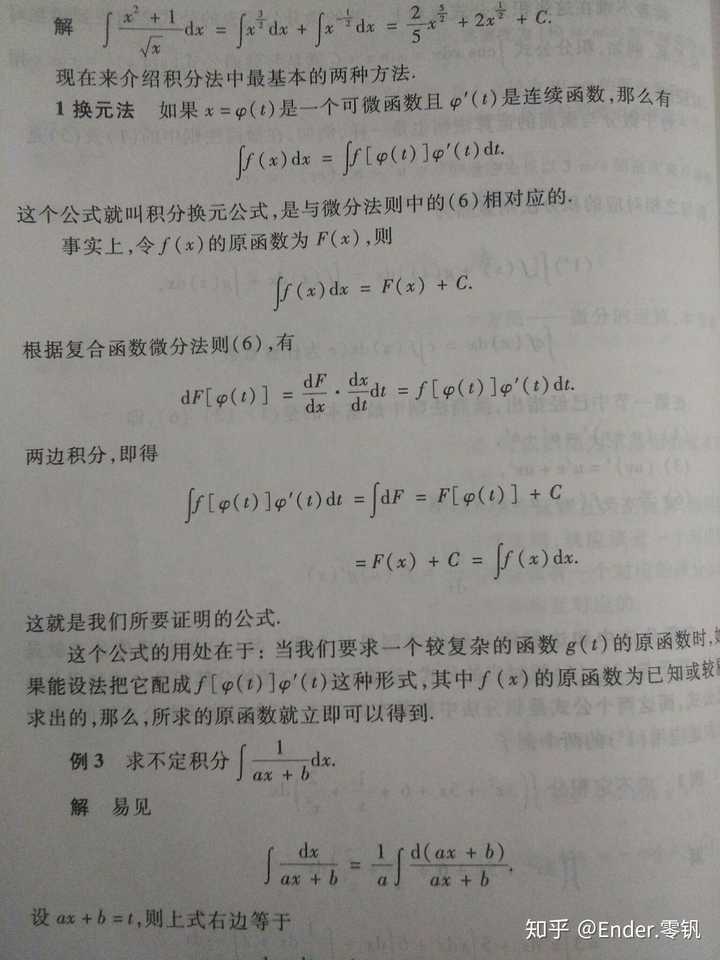 解 ∫ (x² + 1)/√x dx = ∫x^{3/2}dx + ∫x^{-1/2}dx = 2/5 x^{5/2} + 2x^{1/2} + C.
现在来介绍积分法中最基本的两种方法.
1 换元法 如果 x = φ(t)是一个可微函数且 φ′(t)是连续函数,那么有
∫f(x)dx = ∫f[φ(t)]φ′(t)dt.
这个公式就叫积分换元公式,是与微分法则中的(6)相对应的.
事实上,令 f(x)的原函数为 F(x),则
∫f(x)dx = F(x) + C.
根据复合函数微分法则(6),有
dF[φ(t)] = dF/dx · dx/dt dt = f[φ(t)]φ′(t)dt.
两边积分,即得
∫f[φ(t)]φ′(t)dt = ∫dF = F[φ(t)] + C
= F(x) + C = ∫f(x)dx.
这就是我们所要证明的公式.
这个公式的用处在于: 当我们要求一个较复杂的函数 g(t)的原函数时,
果能设法把它配成 f[φ(t)]φ′(t)这种形式,其中 f(x)的原函数为已知或较
求出的,那么,所求的原函数就立即可以得到.
例 3 求不定积分 ∫ 1/(ax + b) dx.
解 易见
∫ dx/(ax + b) = 1/a ∫ d(ax + b)/(ax + b).
设 ax + b = t,则上式右边等于
知乎 @Ender.零钒